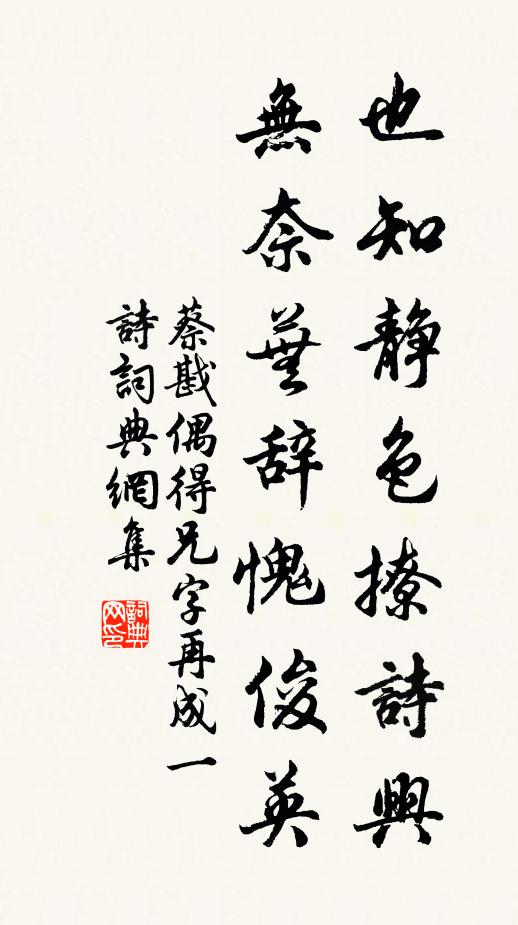 也知静色撩詩興
無奈蕪辞愧俊英
蔡戡偶得兄字再成一
詩詞典網集
詞典網印